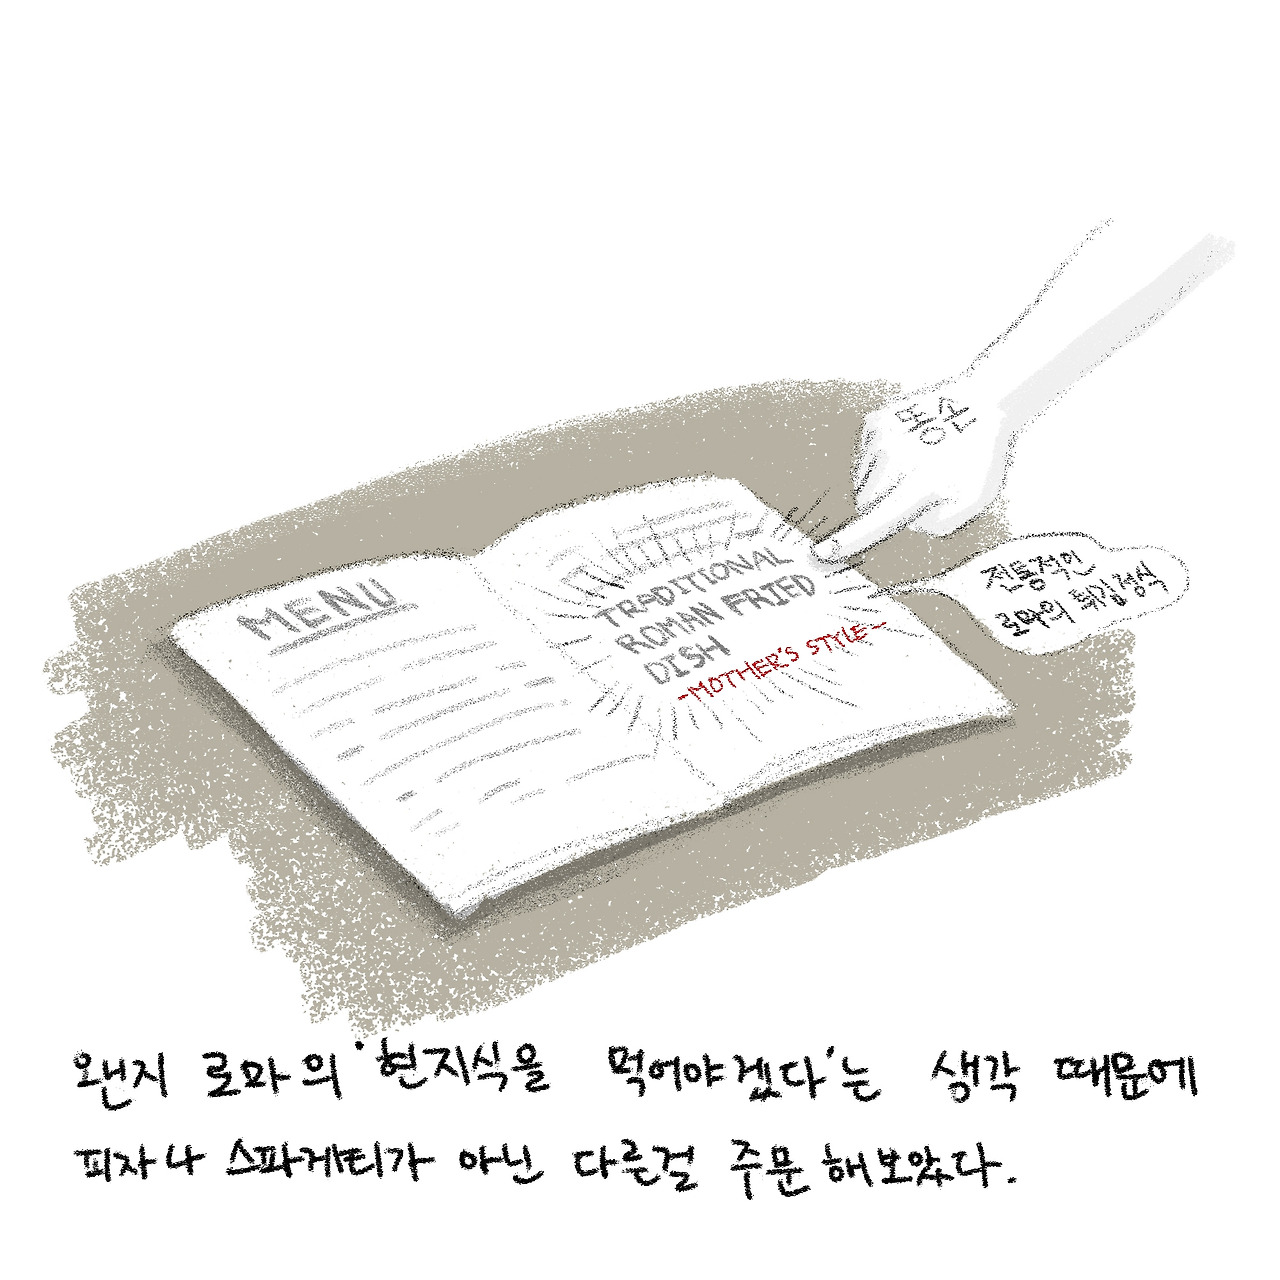 똥손
MENU
TRADITIONAL
ROMAN FRIED
DISH
-MOTHER'S STYLE-
전통적인
로마의 튀김정식
왠지 로마의 '현지식을 먹어야겠다'는 생각 때문에
피자나 스파게티가 아닌 다른걸 주문해보았다.